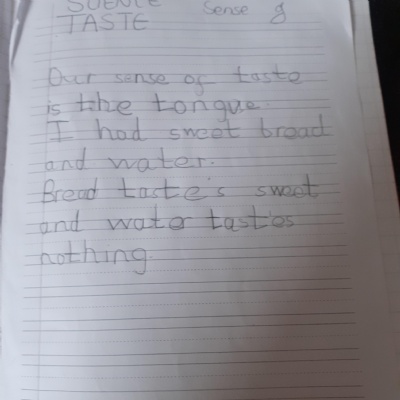 SCIENCE Sense of
TASTE
Our sense of taste
is the tongue.
I had sweet bread
and water.
Bread taste's sweet
and water tastes
nothing.